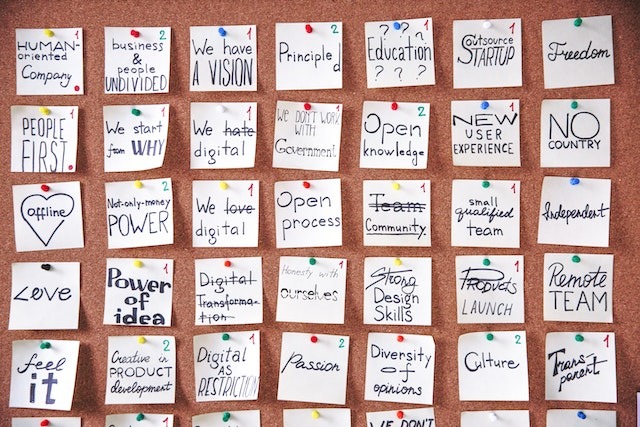 HUMAN-
oriented
Company
2
business
&
people
UNDIVIDED
1
We have
A VISION
2
Principled
2
? ? ?
Education
? ? ?
1
Outsource
STARTUP
Freedom
PEOPLE
FIRST
We start
from WHY
We hate
digital
We DON'T WORK
WITH
Government
2
Open
knowledge
1
NEW
USER
EXPERIENCE
NO
COUNTRY
Offline
2
Not-only-money
POWER
1
We love
digital
1
Open
process
1
Team
Community
1
small
qualified
team
Independent
Love
Power
of
idea
1
Digital
Transforma-
tion
1
Honesty with
ourselves
Strong
Design
Skills
1
Products
LAUNCH
2
Remote
TEAM
feel
it
2
Creative in
PRODUCT
development
1
Digital
AS
RESTRICTION
2
Passion
Diversity
of
opinions
2
Culture
1
Trans
parent
WE DON'T